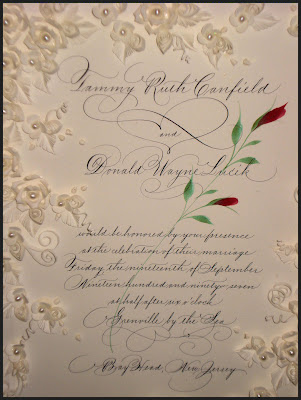 Tammy Ruth Canfield
and
Donald Wayne Lalik
would be honored by your presence
at the celebration of their marriage
Friday, the nineteenth of September
Nineteen hundred and ninety-seven
at half after six o'clock
Grenville by the Sea
Bay Head, New Jersey